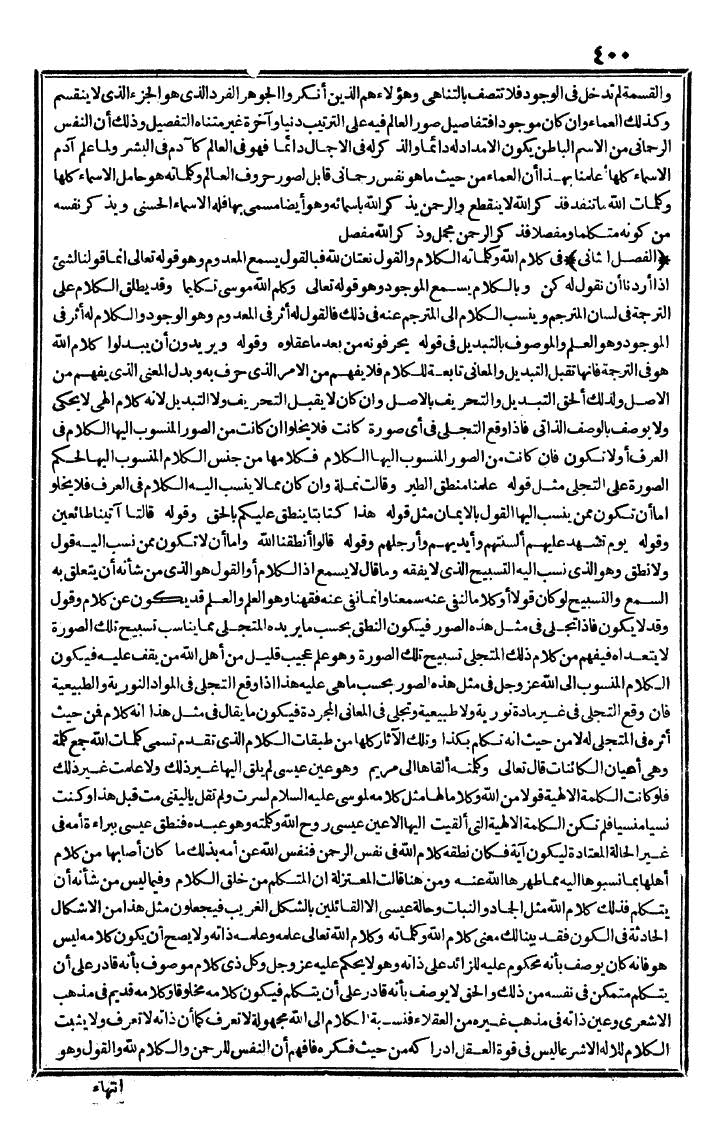 ٤٠٠
والقسمة لم تدخل فى الوجود فلا تتصف بالتناهى وهؤلاء هم الذين أنكروا الجوهر الفرد الذى هو الجزء الذى لا ينقسم
وكذلك العماء وان كان موجود افتفاصيل صور العالم فيه على الترتيب دنيا وآخرة غير متناه التفصيل وذلك أن النفس
الرحمانى من الاسم الباطن يكون الامداد له دائما والذكر له فى الاجمال دائما فهو فى العالم كآدم فى البشر ولما علم آدم
الاسماء كلها علمنا بهذا أن العماء من حيث ما هو نفس رحمانى قابل لصور حروف العالم وكلماته هو حامل الاسماء كلها
وكلمات الله ما تنفد فذكر الله لا ينقطع والرحمن يذكر الله باسمائه وهو أيضا مسمى بها فله الاسماء الحسنى ويذكر نفسه
من كونه متكلما ومفصلا فذكر الرحمن مجمل وذكر الله مفصل
﴿الفصل الثانى﴾ فى كلام الله وكلماته الكلام والقول نعتان لله فبالقول يسمع المعدوم وهو قوله تعالى انما قولنا لشئ
اذا أردناه أن نقول له كن وبالكلام يسمع الموجود وهو قوله تعالى وكلم الله موسى تكليما وقد يطلق الكلام على
الترجمة فى لسان المترجم وينسب الكلام الى المترجم عنه فى ذلك فالقول له أثر فى المعدوم وهو الوجود والكلام له أثر فى
الموجود وهو العلم والموصوف بالتبديل فى قوله يحرفونه من بعد ما عقلوه وقوله ويريدون أن يبدلوا كلام الله
هو فى الترجمة فانها تقبل التبديل والمعانى تابعة للكلام فلا يفهم من الامر الذى حرف به وبدل المعنى الذى يفهم من
الاصل ولذلك ألحق التبديل والتحريف بالاصل وان كان لا يقبل التحريف ولا التبديل لانه كلام الهى لا يحكى
ولا يوصف بالوصف الذاتى فاذا وقع التجلى فى أى صورة كانت فلا يخلوا ان كانت من الصور المنسوب اليها الكلام فى
العرف أولا تكون فان كانت من الصور المنسوب اليها الكلام فكلامها من جنس الكلام المنسوب اليها لحكم
الصورة على التجلى مثل قوله علمنا منطق الطير وقالت نملة وان كان مما لا ينسب اليه الكلام فى العرف فلا يخلو
اما أن تكون ممن ينسب اليها القول بالايمان مثل قوله هذا كتابنا ينطق عليكم بالحق وقوله قالتا آتينا طائعين
وقوله يوم تشهد عليهم ألسنتهم وأيديهم وأرجلهم وقوله قالوا أنطقنا الله واما أن لا تكون ممن نسب اليه قول
ولا نطق وهو الذى نسب اليه التسبيح الذى لا يفقه وما قال لا يسمع اذ الكلام أو القول هو الذى من شأنه أن يتعلق به
السمع والتسبيح لو كان قولا أو كلاما لنفى عنه سمعنا وانما نفى عنه فقهنا وهو العلم والعلم قد يكون عن كلام وقول
وقد لا يكون فاذا تجلى فى مثل هذه الصور فيكون النطق بحسب ما يريده المتجلى مما يناسب تسبيح تلك الصورة
لا يتعداه فيفهم من كلام ذلك المتجلى تسبيح تلك الصورة وهو علم عجيب قليل من أهل الله من يقف عليه فيكون
الكلام المنسوب الى الله عز وجل فى مثل هذه الصور بحسب ما هى عليه هذا اذا وقع التجلى فى المواد النورية والطبيعية
فان وقع التجلى فى غير مادة نورية ولا طبيعية وتجلى فى المعانى المجردة فيكون ما يقال فى مثل هذا انه كلام فمن حيث
أثره فى المتجلى له لا من حيث انه تكلم بكذا وتلك الآثار كلها من طبقات الكلام الذى تقدم تسمى كلمات الله جمع كلمة
وهى أعيان الكائنات قال تعالى وكلمته ألقاها الى مريم وهو عين عيسى لم يلق اليها غير ذلك ولا علمت غير ذلك
فلو كانت الكلمة الالهية قولا من الله وكلاما لها مثل كلامه لموسى عليه السلام لسرت ولم تقل ياليتنى مت قبل هذا وكنت
نسيا منسيا فلم تكن الكلمة الالهية التى ألقيت اليها الا عين عيسى روح الله وكلمته وهو عبده فنطق عيسى ببراءة أمه فى
غير الحالة المعتادة ليكون آية فكان نطقه كلام الله فى نفس الرحمن فنفس الله عن أمه بذلك ما كان أصابها من كلام
أهلها بما نسبوها اليه مما طهرها الله عنه ومن هنا قالت المعتزلة ان المتكلم من خلق الكلام وفيما ليس من شأنه أن
يتكلم فذلك كلام الله مثل الجماد والنبات وحالة عيسى الا القائلين بالشكل الغريب فيجعلون مثل هذا من الاشكال
الحادثة فى الكون فقد بينا لك معنى كلام الله وكلماته وكلام الله تعالى علمه وعلمه ذاته ولا يصح أن يكون كلامه ليس
هو فانه كان يوصف بأنه محكوم عليه للزائد على ذاته وهو لا يحكم عليه عز وجل وكل ذى كلام موصوف بأنه قادر على أن
يتكلم متمكن فى نفسه من ذلك والحق لا يوصف بأنه قادر على أن يتكلم فيكون كلامه مخلوقا وكلامه قديم فى مذهب
الاشعرى وعين ذاته فى مذهب غيره من العقلاء فنسبة الكلام الى الله مجهولة لا تعرف كما أن ذاته لا تعرف ولا يثبت
الكلام للاله الا شرعا ليس فى قوة العقل ادراكه من حيث فكره فافهم أن النفس للرحمن والكلام لله والقول وهو
انتهاء